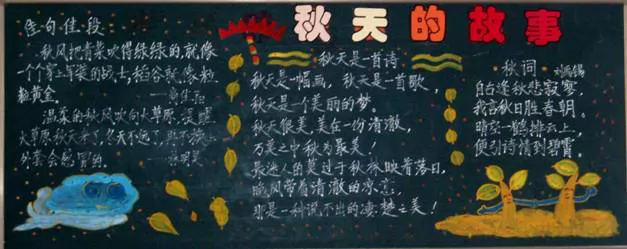 秋天的故事
佳·句·佳·段
秋风把青菜吹得绿绿的就像
一个个穿军装的战士,稻谷就像粒
粒黄金。
温柔的秋风吹向大草原,没噬
大草原秋天来了,冬天不远了,再不
外套会感冒的。
秋天是一首诗
秋天是一幅画,秋天是一首歌,
秋天是一个美丽的梦。
秋天很美,美在一份清澈,
万美之中秋为最美!
最迷人的莫过于秋林映着落日,
晚风带着清澈的凉意,
那是一种说不出的凄楚之美!
秋词 刘禹锡
自古逢秋悲寂寥,
我言秋日胜春朝。
晴空一鹤排云上,
便引诗情到碧霄。